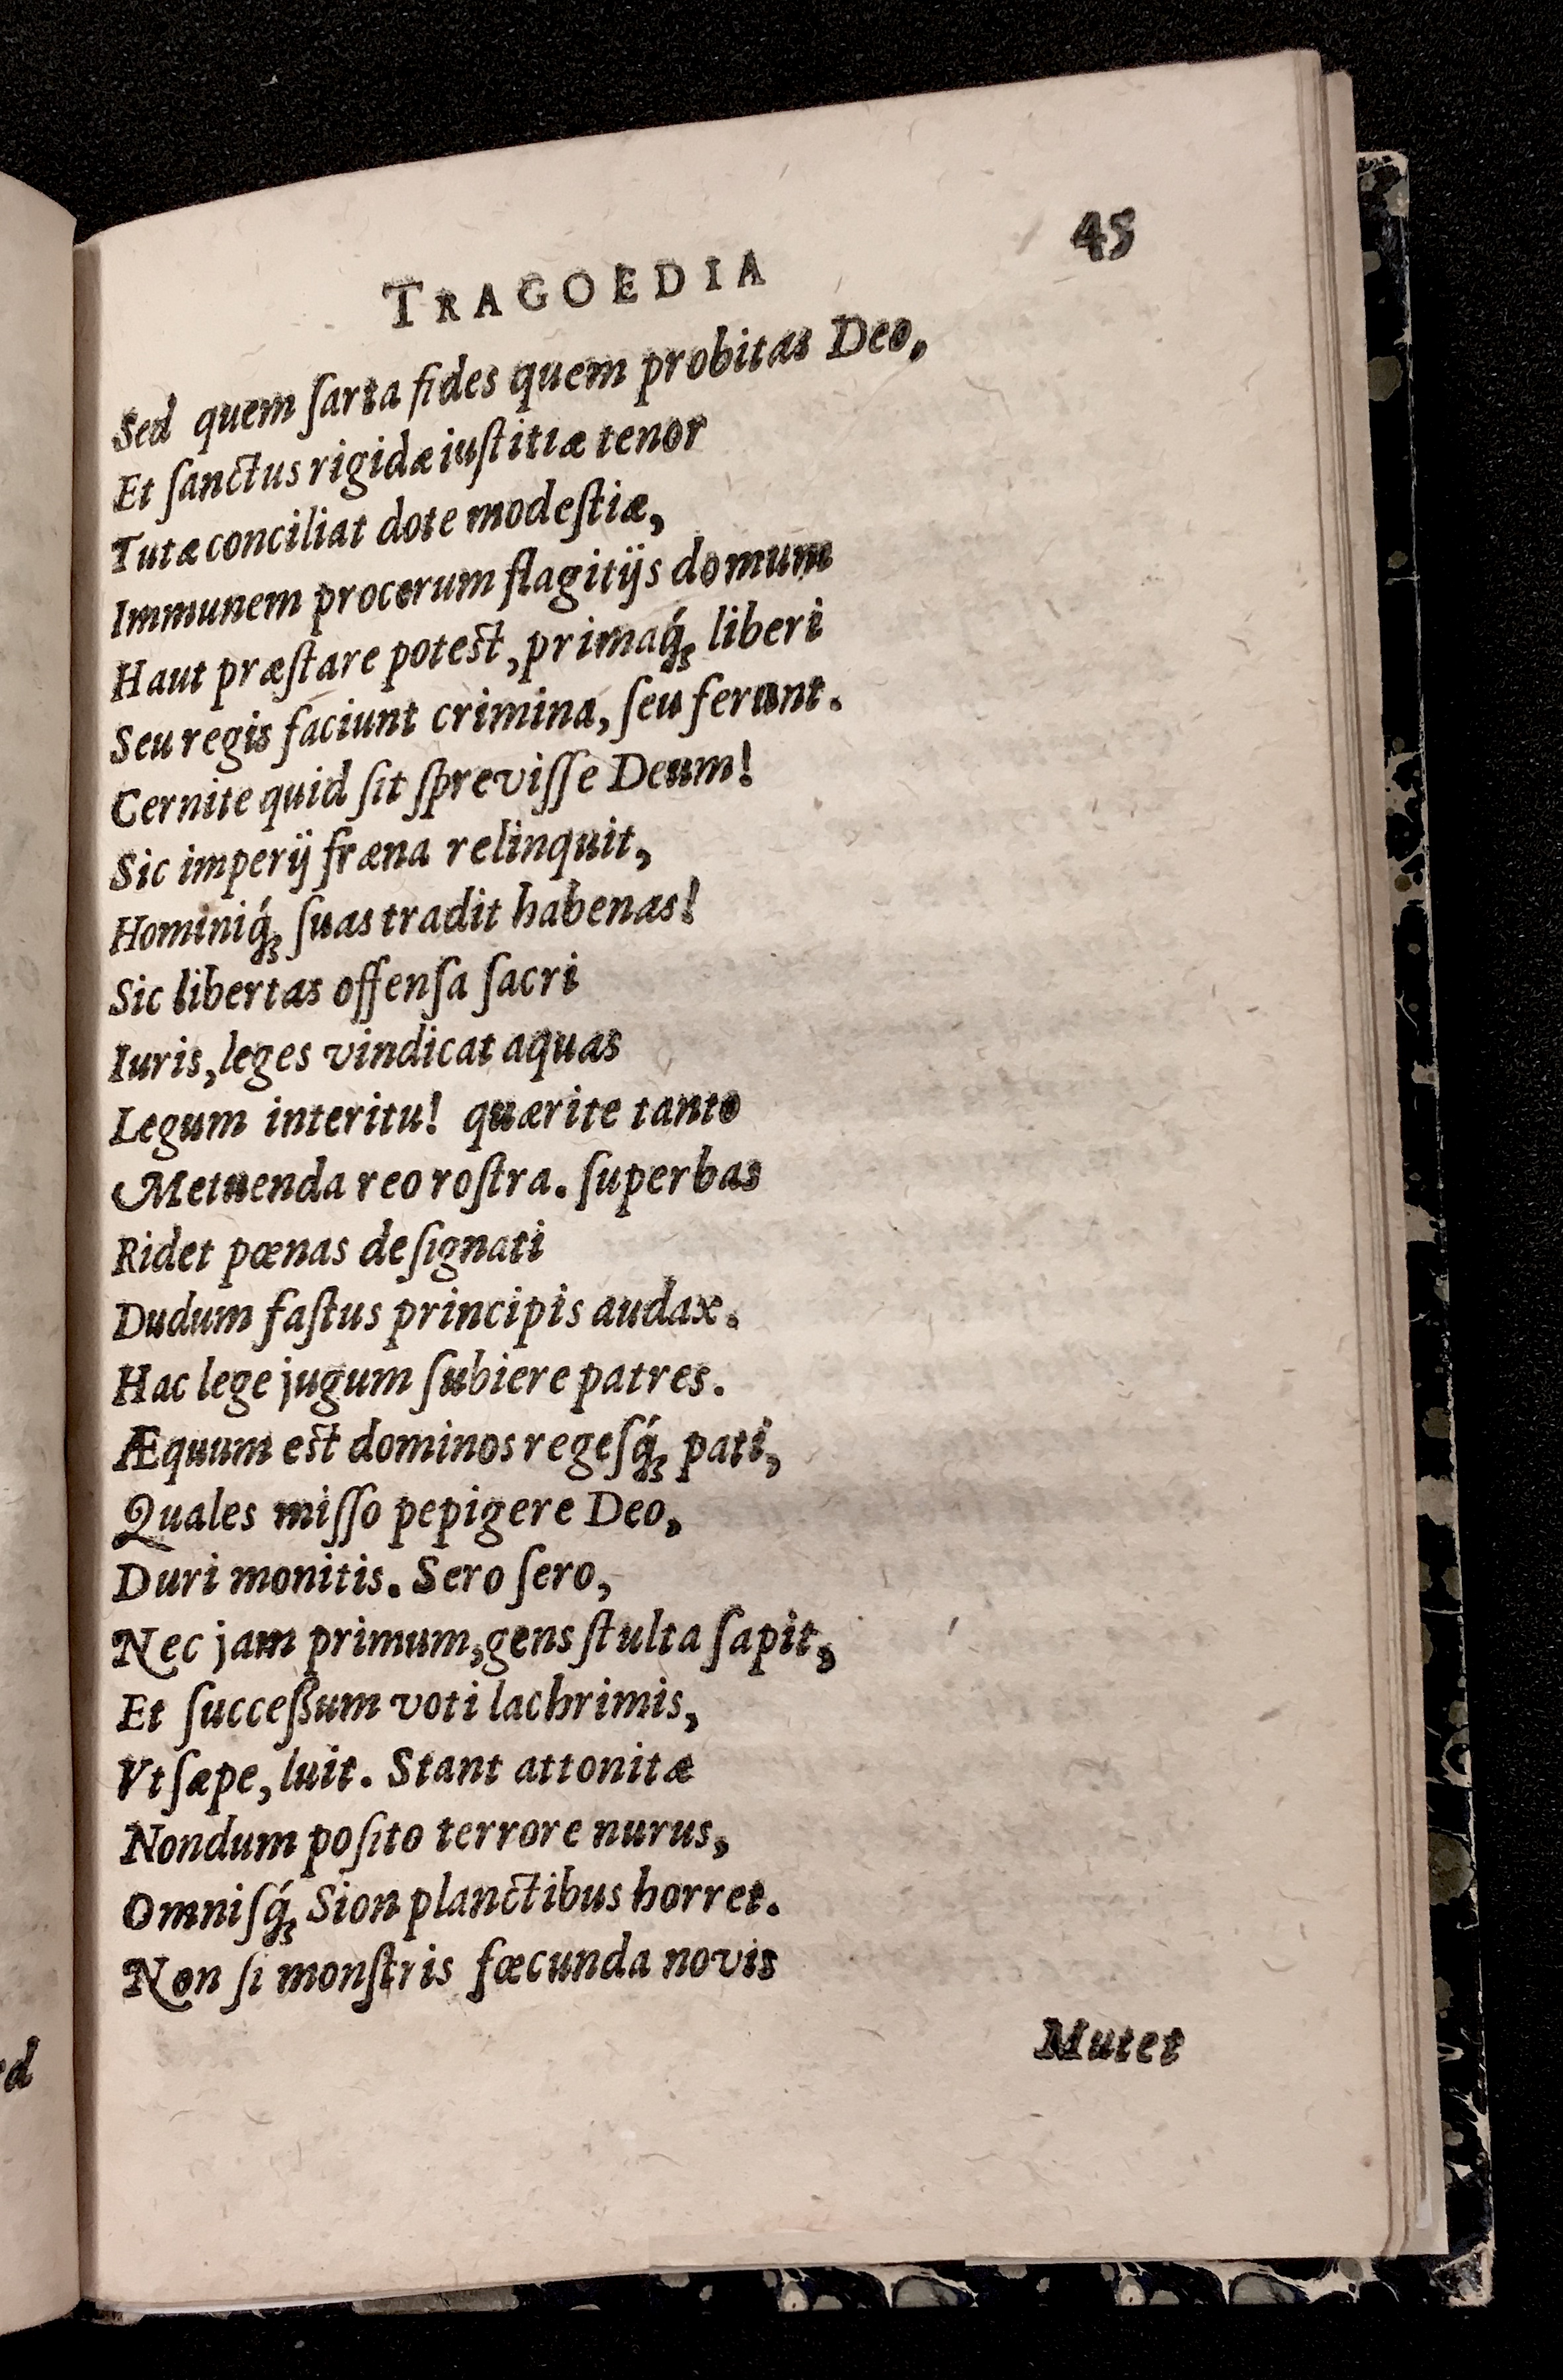 TRAGOEDIA 45
Sed quem ſarta fides quem probitas Deo,
Et ſanctus rigidæ iuſtitiæ tenor
Tutæ conciliat dote modeſtiæ,
Immunem procerum flagitijs domum
Haut præſtare poteſt, primaq́ꝫ liberi
Seu regis faciunt crimina, ſeu ferunt.
Cernite quid ſit ſpreviſſe Deum!
Sic imperij fræna relinquit,
Hominiq́ꝫ ſuas tradit habenas!
Sic libertas offenſa ſacri
Iuris, leges vindicat aquas
Legum interitu! quærite tanto
Metuenda reo roſtra. ſuperbas
Ridet pœnas deſignati
Dudum faſtus principis audax.
Hac lege jugum ſubiere patres.
Æquum eſt dominos regeſq́ꝫ pati,
Quales miſſo pepigere Deo,
Duri monitis. Sero ſero,
Nec jam primum, gens ſtulta ſapit,
Et ſucceßum voti lachrimis,
Vt ſæpe, luit. Stant attonitæ
Nondum poſito terrore nurus,
Omniſq́ꝫ Sion planctibus horret.
Non ſi monſtris fœcunda novis
Mutet